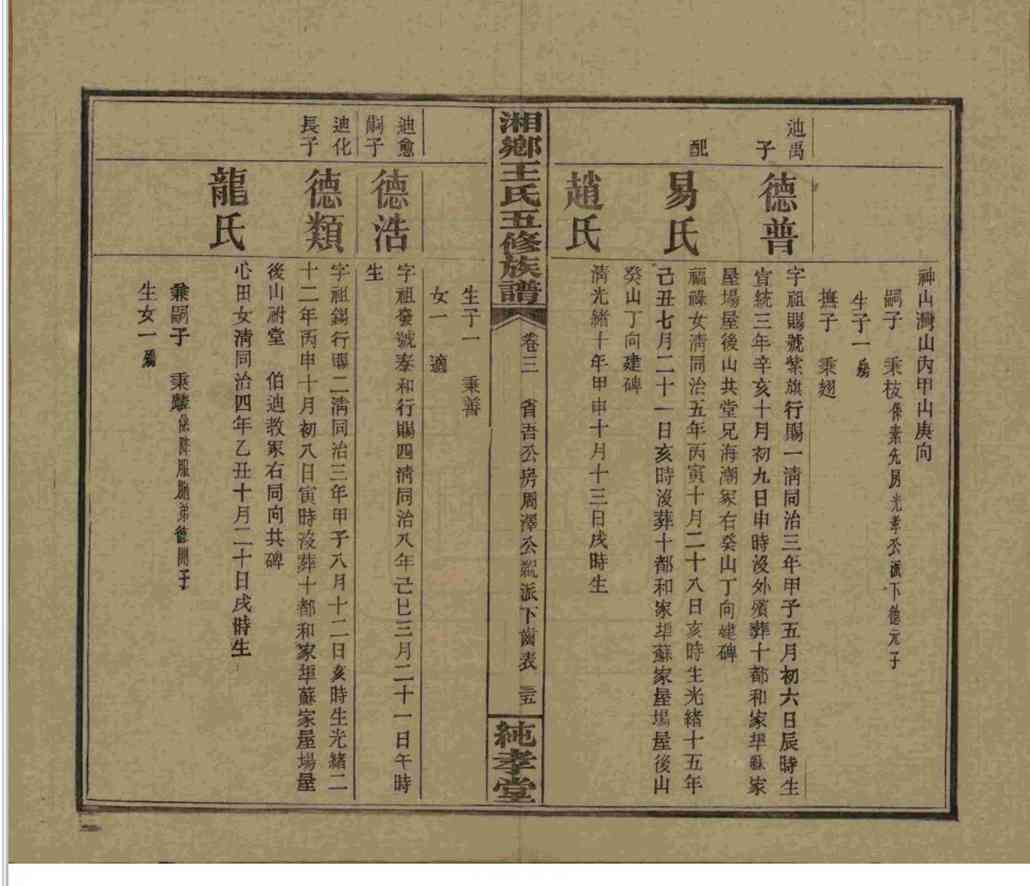 神山灣山內甲山庚向
嗣子 秉枝係素先房光孝公派下德元子
生子一 殤
撫子 秉翅
迪禹
子
德普
字祖賜號紫旗行賜一淸同治三年甲子五月初六日辰時生
宣統三年辛亥十月初九日申時沒外殯葬十都和家埠蘇家
屋場屋後山共堂兄海潮冢右癸山丁向建碑
配
易氏
福祿女淸同治五年丙寅十月二十八日亥時生光緒十五年
己丑七月二十一日亥時沒葬十都和家埠蘇家屋場屋後山
癸山丁向建碑
趙氏
淸光緒十年甲申十月十三日戌時生
湘鄉王氏五修族譜
卷三 省吾公房周澤公 派下齒表 三五
純孝堂
生子一 秉善
女一 適
迪愈
嗣子
德浩
字祖發號泰和行賜四淸同治八年己巳三月二十一日午時
生
迪化
長子
德類
字祖錫行賜二淸同治三年甲子八月十二日亥時生光緒二
十二年丙申十月初八日寅時沒葬十都和家埠蘇家屋場屋
後山祔堂 伯迪教冢右同向共碑
龍氏
心田女淸同治四年乙丑十月二十日戌時生
兼嗣子 秉 係降服胞弟德 子
生女一 殤